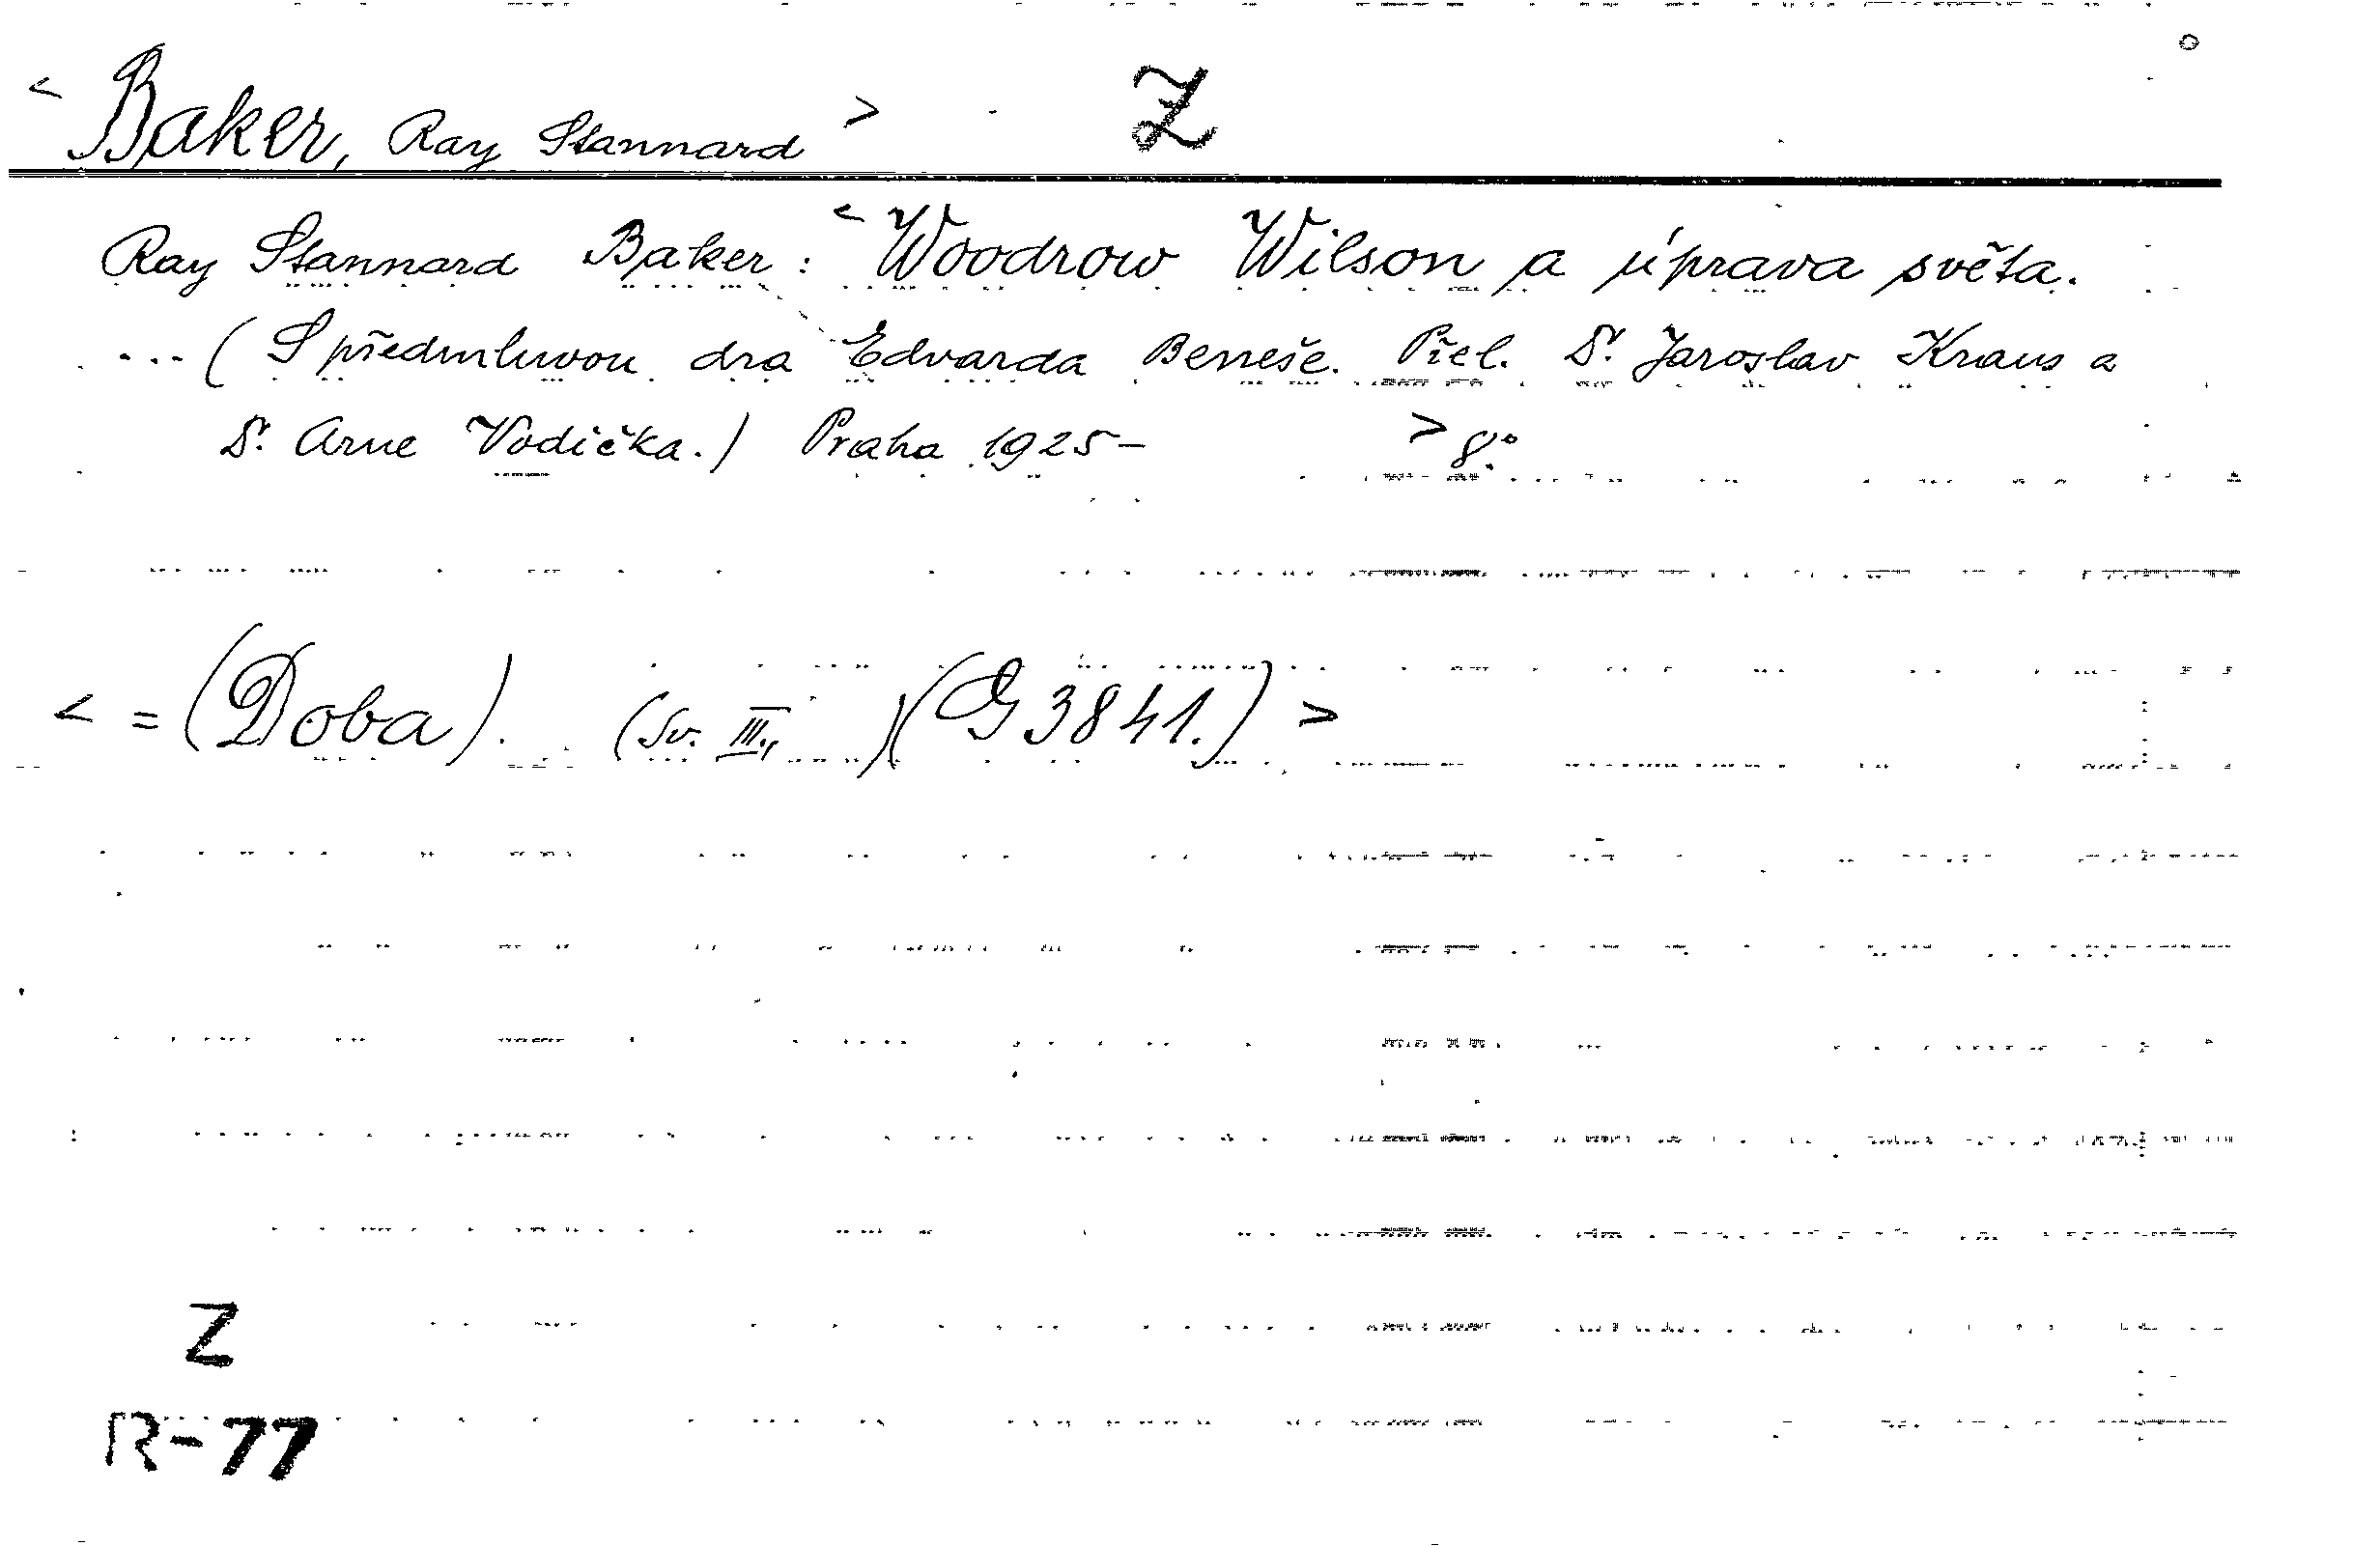 < Baker, Ray Stannard > Z
Ray Stannard Baker: < Woodrow Wilson a úprava světa.
... (S předmluvou dra Edvarda Beneše. Přel. Dr. Jaroslav Kraus a
Dr. Arne Vodička.) Praha 1925– > 8.°
< = (Doba). (Sv. III., )(G 3841.) >
Z
R-77